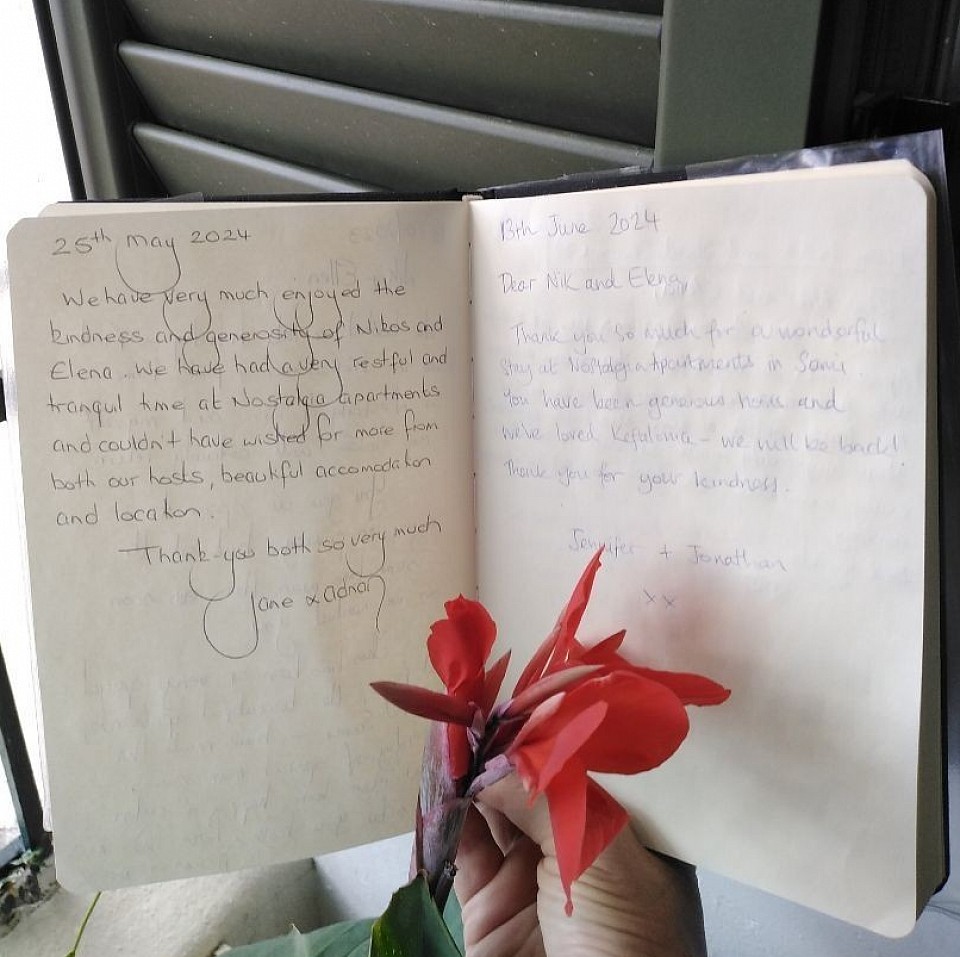 25th May 2024
We have very much enjoyed the
kindness and generosity of Nikos and
Elena. We have had a very restful and
tranquil time at Nostalgia apartments
and couldn't have wished for more from
both our hosts, beautiful accomodation
and location.
Thank-you both so very much
Jane & Adnan
13th June 2024
Dear Nik and Elena,
Thank you so much for a wonderful
stay at Nostalgia Apartments in Sami.
You have been generous hosts and
we've loved Kefalonia - we will be back!
Thank you for your kindness.
Jennifer + Jonathan
xx